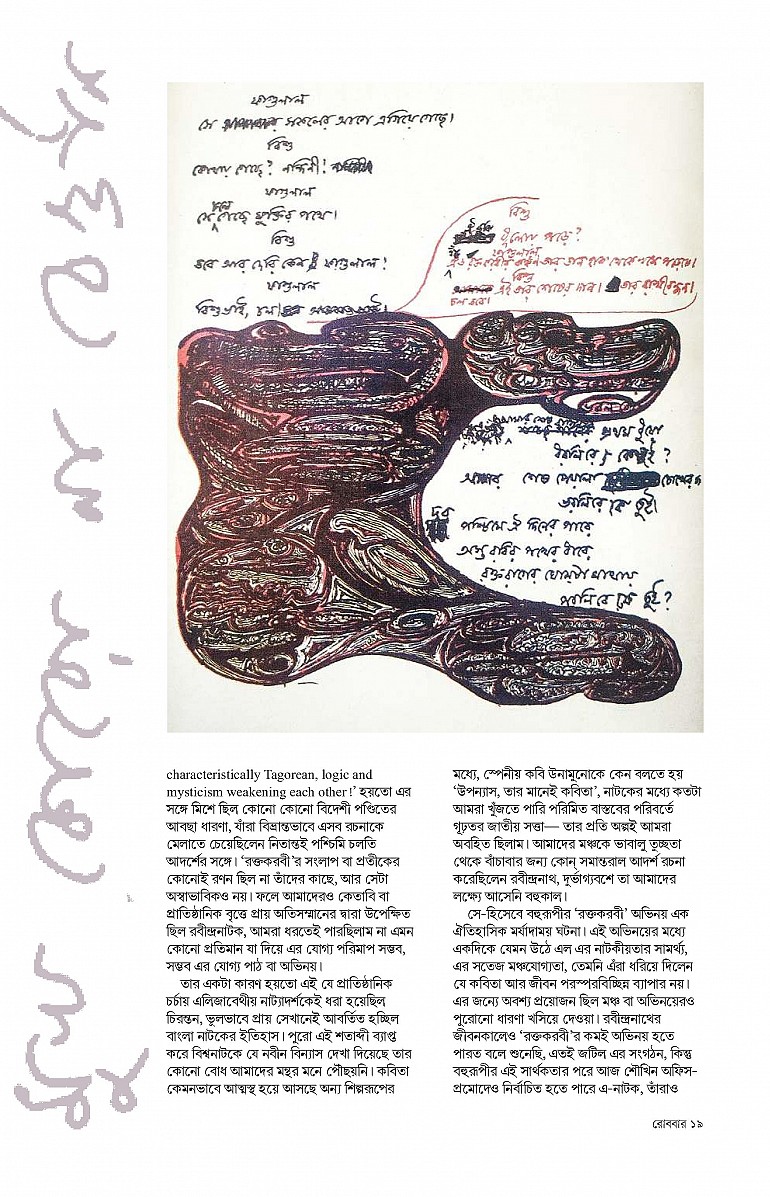 ফাগুলাল
সে সকলের আগে এগিয়ে গেছে।
বিশু
কোথায় গেছে? নন্দিনী!
ফাগুলাল
সে গেছে মুক্তির পথে।
বিশু
তবে আর দেরি কেন ফাগুলাল!
ফাগুলাল
বিশুভাই, চলো
বিশু
ধুলোয় পড়ে?
ফাগুলাল
বিশু
এই তার শেষের দান।
চল তবে।
প্রথম ছুঁয়ে
আমার শেষ পেয়ালা চোখের
ভরলিরে কে তুই।
পশ্চিমে ঐ দিনের পারে
অস্ত রবির পথের ধারে
রক্তরাগের ঘোমটা মাথায়
পরলিরে কে তুই?
characteristically Tagorean, logic and
mysticism weakening each other!’ হয়তো এর
সঙ্গে মিশে ছিল কোনো কোনো বিদেশী পণ্ডিতের
আবছা ধারণা, যাঁরা বিভ্রান্তভাবে এসব রচনাকে
মেলাতে চেয়েছিলেন নিতান্তই পশ্চিমি চলতি
আদর্শের সঙ্গে। ‘রক্তকরবী’র সংলাপ বা প্রতীকের
কোনোই রণন ছিল না তাঁদের কাছে, আর সেটা
অস্বাভাবিকও নয়। ফলে আমাদেরও কেতাবি বা
প্রাতিষ্ঠানিক বৃত্তে প্রায় অতিসম্মানের দ্বারা উপেক্ষিত
ছিল রবীন্দ্রনাটক, আমরা ধরতেই পারছিলাম না এমন
কোনো প্রতিমান যা দিয়ে এর যোগ্য পরিমাপ সম্ভব,
সম্ভব এর যোগ্য পাঠ বা অভিনয়।
তার একটা কারণ হয়তো এই যে প্রাতিষ্ঠানিক
চর্চায় এলিজাবেথীয় নাট্যাদর্শকেই ধরা হয়েছিল
চিরন্তন, ভুলভাবে প্রায় সেখানেই আবর্তিত হচ্ছিল
বাংলা নাটকের ইতিহাস। পুরো এই শতাব্দী ব্যাপ্ত
করে বিশ্বনাটকে যে নবীন বিন্যাস দেখা দিয়েছে তার
কোনো বোধ আমাদের মন্থর মনে পৌঁছয়নি। কবিতা
কেমনভাবে আত্মস্থ হয়ে আসছে অন্য শিল্পরূপের
মধ্যে, স্পেনীয় কবি উনামুনোকে কেন বলতে হয়
‘উপন্যাস, তার মানেই কবিতা’, নাটকের মধ্যে কতটা
আমরা খুঁজতে পারি পরিমিত বাস্তবের পরিবর্তে
গূঢ়তর জাতীয় সত্তা— তার প্রতি অল্পই আমরা
অবহিত ছিলাম। আমাদের মঞ্চকে ভাবালু তুচ্ছতা
থেকে বাঁচাবার জন্য কোন্ সমান্তরাল আদর্শ রচনা
করেছিলেন রবীন্দ্রনাথ, দুর্ভাগ্যবশে তা আমাদের
লক্ষ্যে আসেনি বহুকাল।
সে-হিসেবে বহুরূপীর ‘রক্তকরবী’ অভিনয় এক
ঐতিহাসিক মর্যাদাময় ঘটনা। এই অভিনয়ের মধ্যে
একদিকে যেমন উঠে এল এর নাটকীয়তার সামর্থ্য,
এর সতেজ মঞ্চযোগ্যতা, তেমনি এঁরা ধরিয়ে দিলেন
যে কবিতা আর জীবন পরস্পরবিচ্ছিন্ন ব্যাপার নয়।
এর জন্যে অবশ্য প্রয়োজন ছিল মঞ্চ বা অভিনয়েরও
পুরোনো ধারণা খসিয়ে দেওয়া। রবীন্দ্রনাথের
জীবনকালেও ‘রক্তকরবী’র কমই অভিনয় হতে
পারত বলে শুনেছি, এতই জটিল এর সংগঠন, কিন্তু
বহুরূপীর এই সার্থকতার পরে আজ শৌখিন অফিস-
প্রমোদেও নির্বাচিত হতে পারে এ-নাটক, তাঁরাও
রোববার ১৯